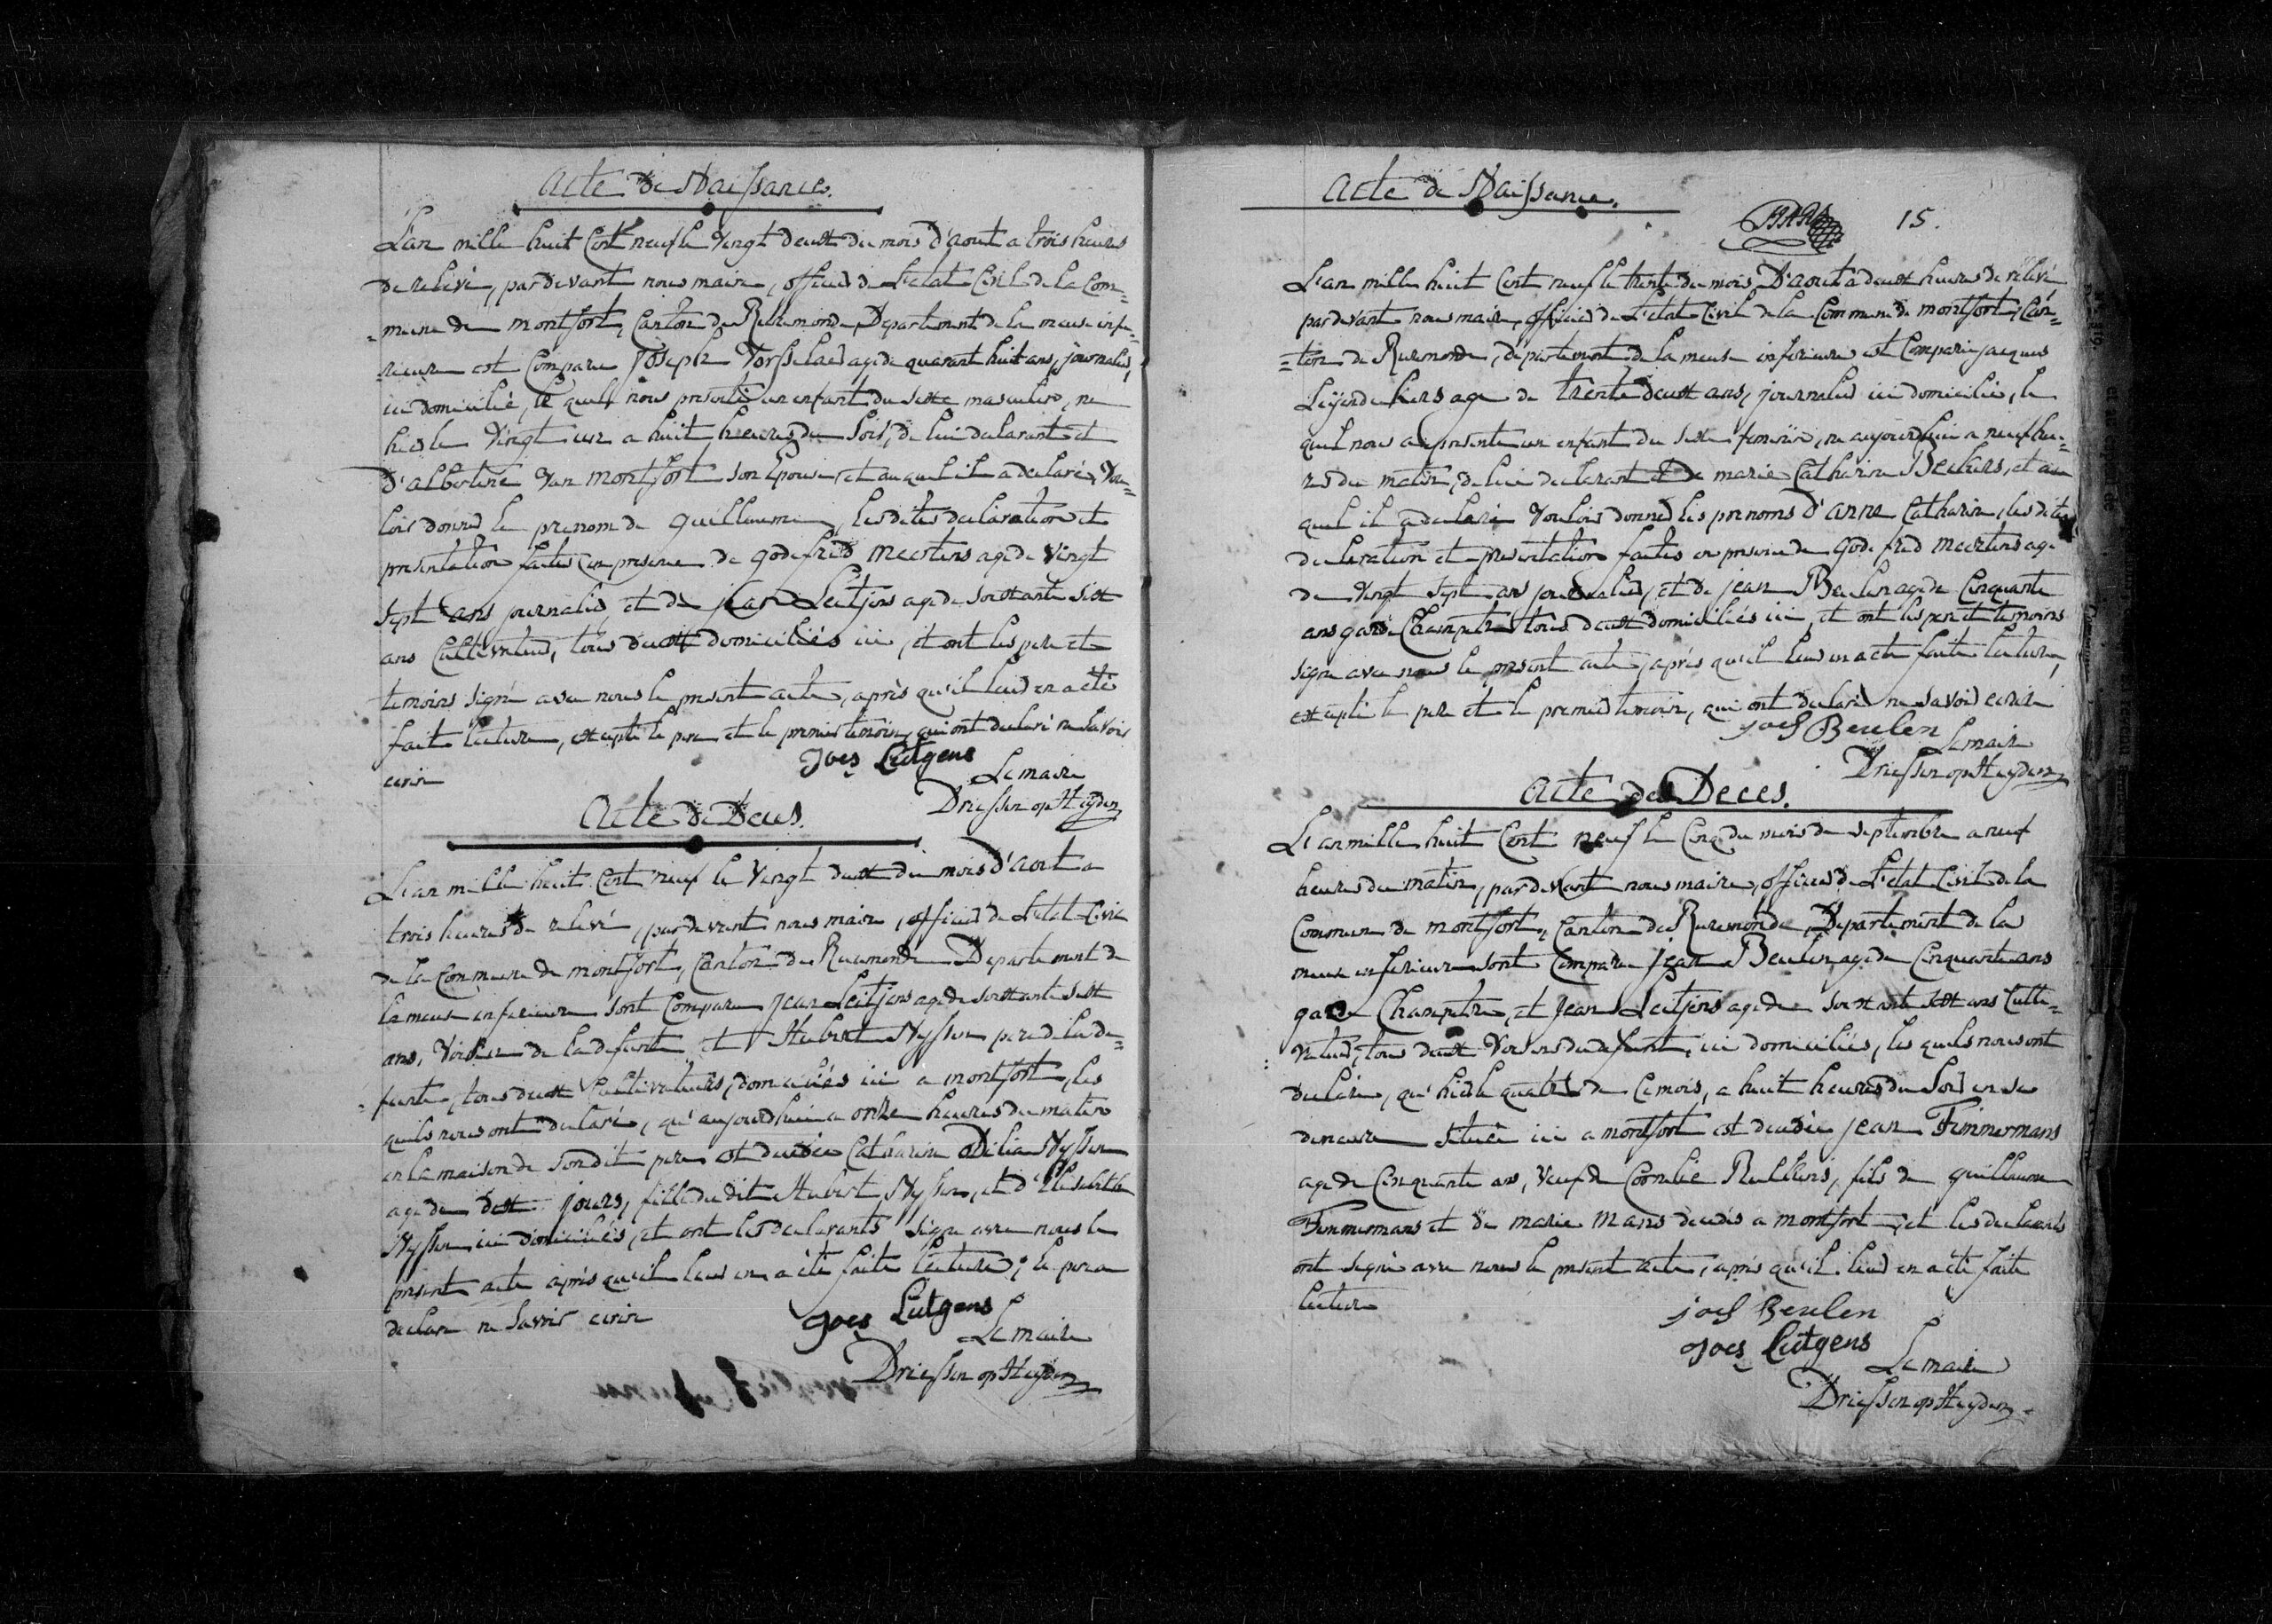 Acte de Naissance.
L'an mille huit Cent neuf le vingt deux du mois d'aout a trois heures
de relevé, pardevant nous maire, officier de L'etat Civil de la Com=
=mune de montfort, Canton de Ruremonde, Departement de la meuse infe=
=rieure est Comparu Joseph agé de quarant huit ans, journalier,
ici domicilié, le quel nous presenté un enfant du sexe masculin, né
hier le vingt un a huit heures du soir, de lui declarant et
D'albertine van montfort son Epouse, et auquel il a declaré vou=
loir donner le prenom de guillaume, les dites declaration et
presentation faites en presence de godefrid meertens agé de vingt
sept ans journalier, et de jean Leitjens agé de soixante six
ans Cultivateur, tous deux domiciliés ici, et ont les pere et
temoins signé avec nous le present acte, après qu'il leur en a eté
fait lecture, excepté le pere et le premier temoin, qui ont declaré ne savoir
ecrire
Joes Lutgens
Le maire
Driessen op Heyden
Acte de Deces.
L'an mille huit Cent neuf le vingt deux du mois d'aout a
trois heures de relevé, pardevant nous maire, officier de L'etat Civil
de la Commune de montfort, Canton de Ruremonde Departement de
la meuse inferieure sont Comparu jean Leitjens agé de soixante six
ans, voisin de la defunte et Hubert Nyssen pere de la de=
=funte, tous deux Cultivateurs, domiciliés ici a montfort, les
quels nous ont declaré, qu'aujourdhui a onze heures du matin
en la maison de son dit pere est decedée Catharine Odilia Nyssen
agé de dix jours, fille du dit Hubert Nyssen, et d'Elisabeth
Nyssen ici domiciliés, et ont les declarants signé avec nous le
present acte après qu'il leur en a été faite lecture; le pere a
declaré ne savoir ecrire
Joes Lutgens
Le maire
Driessen op Heyden
Acte de Naissance.
15.
L'an mille huit Cent neuf le trente du mois D'aout a deux heures de relevé
pardevant nous maire, officier de L'etat Civil de la Commune de montfort, Can=
=ton de Ruremonde, departement de la meuse inferieure est Comparu jacques
agé de trente deux ans, journalier ici domicilié, le
quel nous a presenté un enfant du sexe feminin, né aujourdhui a neuf heu=
res du matin, de lui declarant et de marie Catharine Beckers, et au
quel il a declaré vouloir donner les prenoms d'anne Catharine, les dites
declaration et presentation faites en presence de godefrid meertens agé
de vingt sept ans journalier, et de jean Beulen agé de Cinquante
ans garde Champetre tous deux domiciliés ici, et ont les pere et temoins
signé avec nous le present acte, après qu'il leur en a eté faite lecture,
excepté le pere et le premier temoin, qui ont declaré ne savoir ecrire
joes Beulen
Le maire
Driessen op Heyden
Acte de Deces.
L'an mille huit Cent neuf le Cinq du mois de septembre a neuf
heures du matin, pardevant nous maire, officier de L'etat Civil de la
Commune de montfort, Canton de Ruremonde, Departement de la
meuse inferieure sont Comparu jean Beulen agé de Cinquante ans
garde Champetre, et jean Leitjens agé de soixante six ans Culti=
vateur, tous deux voisins du defunt, ici domiciliés, les quels nous ont
declaré, qu'hier le quatre de Ce mois, a huit heures du soir en sa
demeure située ici a montfort est decedé jean Timmermans
agé de Cinquante ans, veuf de Cornelie Rutters, fils de guillaume
Timmermans et de marie mans decedés a montfort, et les declarants
ont signé avec nous le present acte, après qu'il leur en a eté faite
lecture
joes Beulen
Joes Lutgens
Le maire
Driessen op Heyden